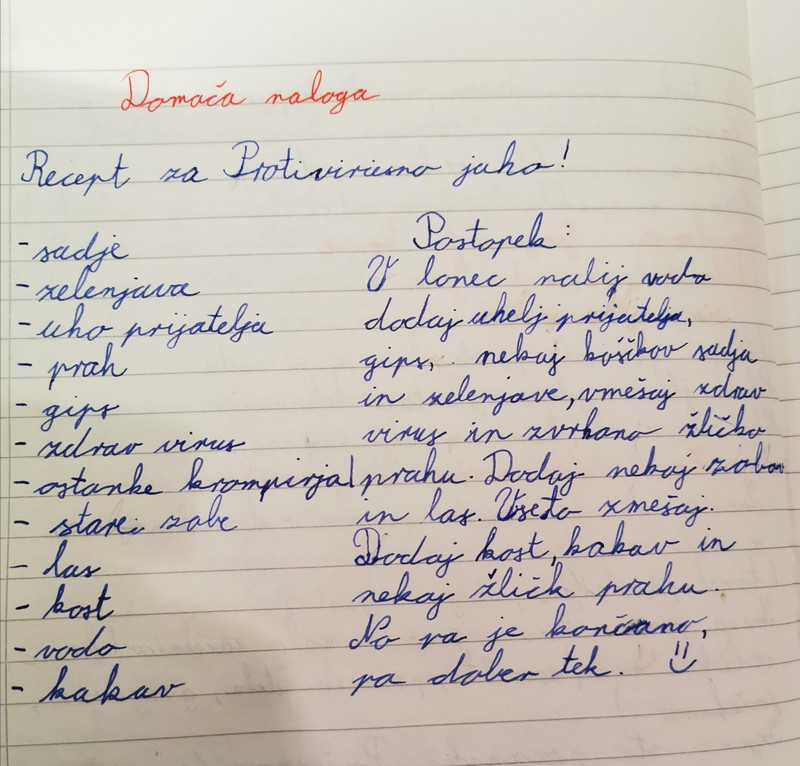 Domača naloga
Recept za Protivirusno juho!
- sadje
- zelenjava
- uho prijatelja
- prah
- gips
- zdrav virus
- ostanke krompirja
- stare zobe
- las
- kost
- vodo
- kakav
Postopek:
V lonec nalij vodo
dodaj uhelj prijatelja,
gips, nekaj koščkov sadja
in zelenjave, vmešaj zdrav
virus in zvrhano žličko
prahu. Dodaj nekaj zobov
in las. Vse to zmešaj.
Dodaj kost, kakav in
nekaj žličk prahu.
No pa je končano,
pa dober tek.